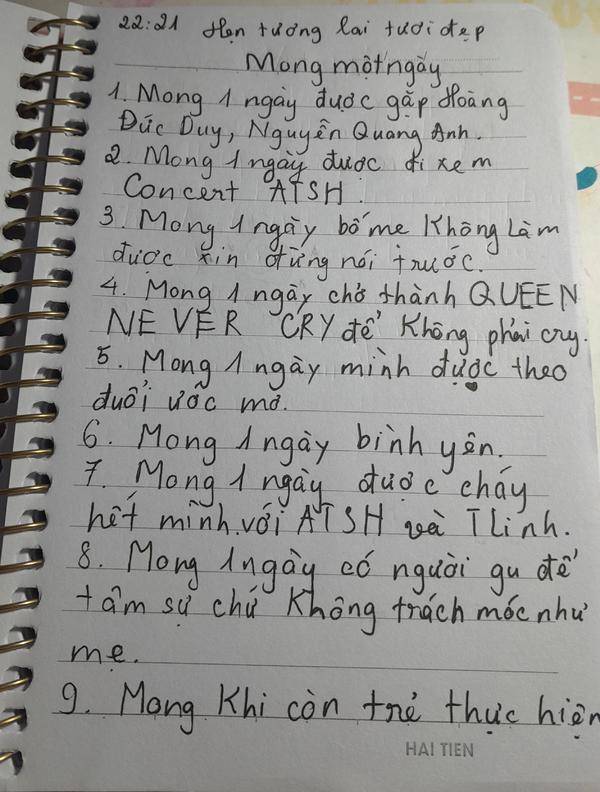 22:21 Hẹn tương lai tươi đẹp
Mong một ngày
1. Mong 1 ngày được gặp Hoàng
Đức Duy, Nguyễn Quang Anh.
2. Mong 1 ngày được đi xem
Concert ATSH.
3. Mong 1 ngày bố mẹ Không Làm
được xin đừng nói trước.
4. Mong 1 ngày chở thành QUEEN
NEVER CRY để không phải cry.
5. Mong 1 ngày mình được theo
đuổi ước mơ.
6. Mong 1 ngày bình yên.
7. Mong 1 ngày được cháy
hết mình với ATSH và Tlinh.
8. Mong 1 ngày có người gu để
tâm sự chứ Không trách móc như
mẹ.
9. Mong Khi còn trẻ thực hiện
HAI TIEN